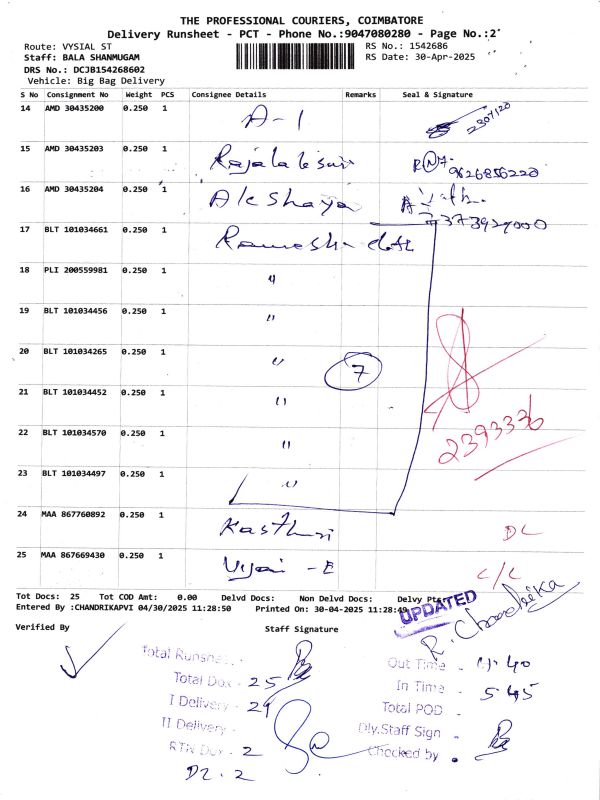 THE PROFESSIONAL COURIERS, COIMBATORE
Delivery Runsheet - PCT - Phone No.:9047080280 - Page No.:2
Route: VYSIAL ST
RS No.: 1542686
Staff: BALA SHANMUGAM
RS Date: 30-Apr-2025
DRS No.: DCJB154268602
Vehicle: Big Bag Delivery
S No Consignment No Weight PCS Consignee Details Remarks Seal & Signature
14 AMD 30435200 0.250 1 A-1 2307120
15 AMD 30435203 0.250 1 9626856220
16 AMD 30435204 0.250 1 Akshaya
17 BLT 101034661 0.250 1 Ramesh
18 PLI 200559981 0.250 1 "
19 BLT 101034456 0.250 1 "
20 BLT 101034265 0.250 1 " 7
21 BLT 101034452 0.250 1 "
22 BLT 101034570 0.250 1 " 2393336
23 BLT 101034497 0.250 1 "
24 MAA 867760892 0.250 1 Kasthuri DL
25 MAA 867669430 0.250 1 Vijai - E C/C
Tot Docs: 25 Tot COD Amt: 0.00 Delvd Docs: Non Delvd Docs: Delvy
Entered By :CHANDRIKAPVI 04/30/2025 11:28:50 Printed On: 30-04-2025 11:28:49
UPDATED
R. Chandrika
Verified By Staff Signature
Total Dox - 25
I Delivery -
II Delivery -
RTN Dox - 2
DL - 2
Out Time - 11.40
In Time - 5.45
Total POD -
Dly.Staff Sign -
Checked by